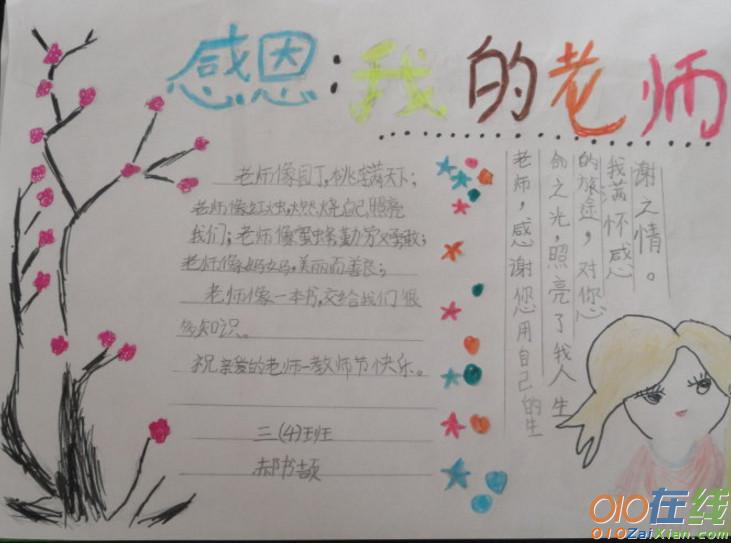 感恩:我的老师
老师像园丁,桃李满天下;
老师像红烛,燃烧自己,照亮
我们;老师像蜜蜂,勤劳又勇敢;
老师像妈妈,美丽而善良;
老师像一本书,交给我们很
多知识。
祝亲爱的老师—教师节快乐。
三(4)班
郝书
老师，感谢您用自己的生
命之光，照亮了我人生
的旅途，对您
我满怀感
谢之情。
010在线
010ZaiXian.com